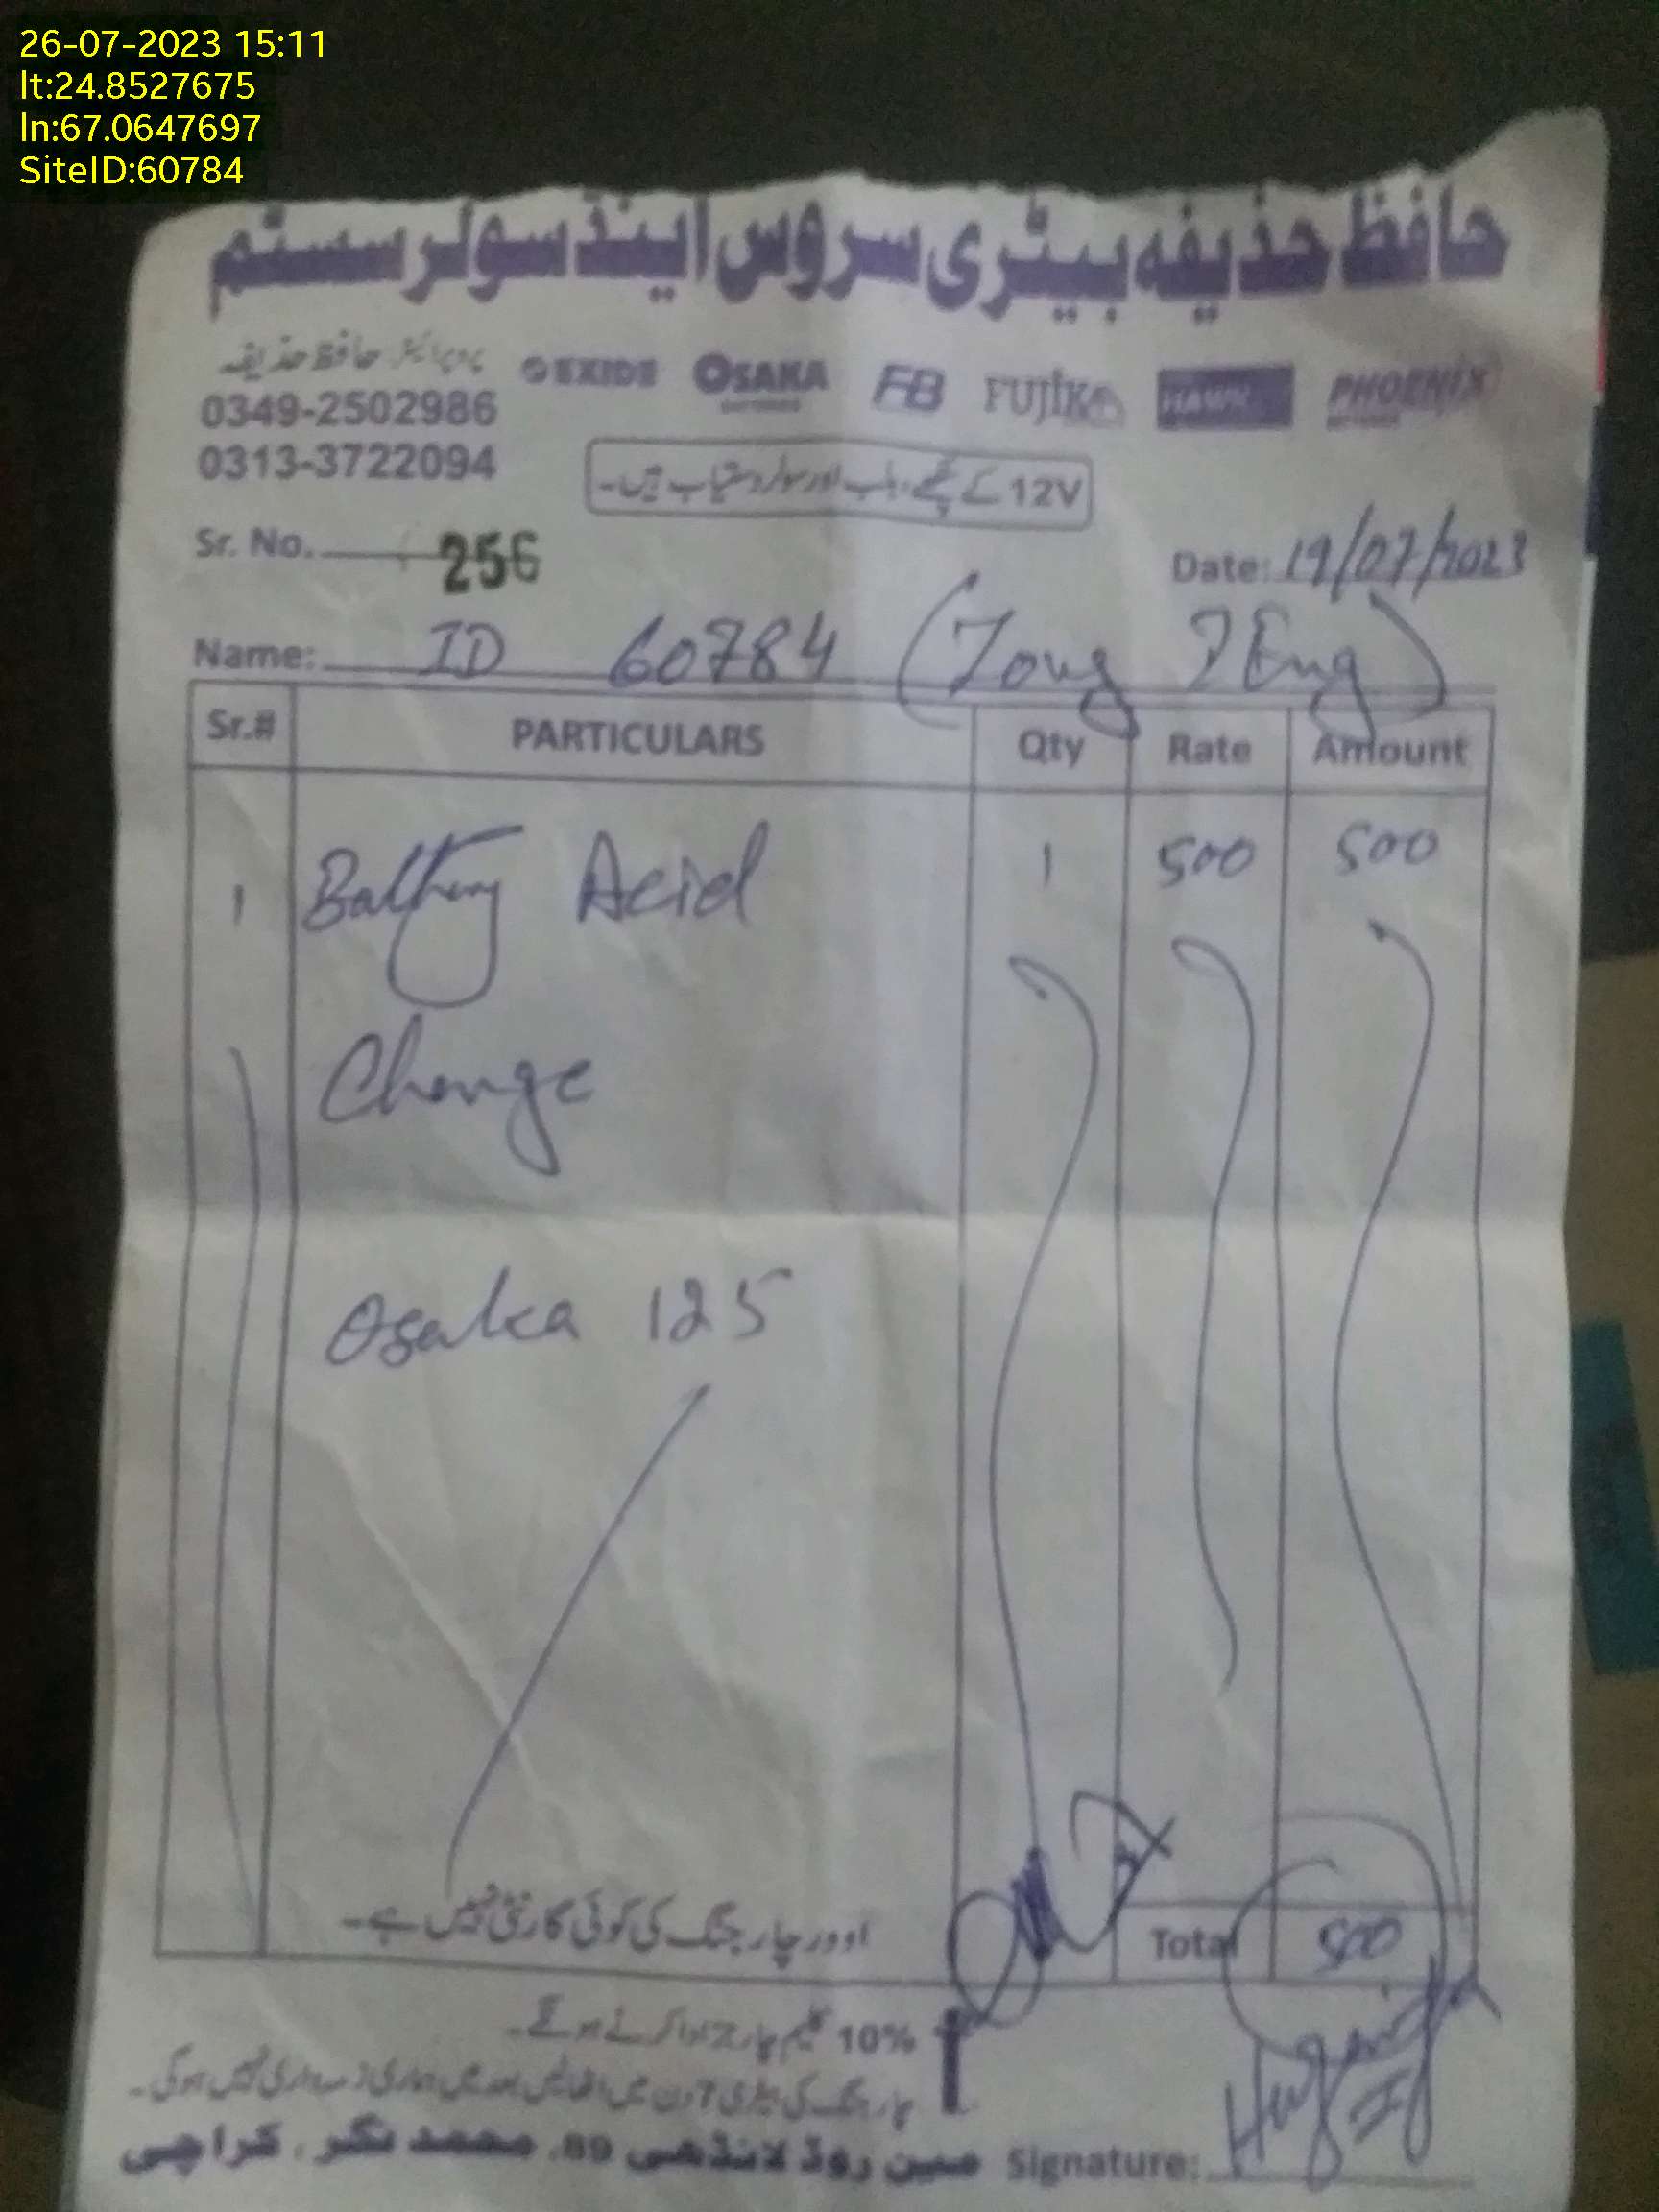 26-07-2023 15:11
lt:24.8527675
ln:67.0647697
SiteID:60784
حافظ حذیفہ بیٹری سروس اینڈ سولر سسٹم
حافظ حذیفہ
EXIDE OSAKA FB FUJIKA HAWK PHOENIX
0349-2502986
0313-3722094
12V کے پنکھے، بلب اور سولر دستیاب ہیں۔
Sr. No. 256
Date: 19/07/2023
Name: ID 60784
Sr.# PARTICULARS Qty Rate Amount
1 Battery Acid 1 500 500
Change
Osaka 125
اوور چارجنگ کی کوئی گارنٹی نہیں ہے۔
Total 500
10% کلیم چارجز ادا کرنے ہونگے۔
چارجنگ کی بیٹری 7 دن میں اٹھالیں بعد میں ہماری ذمہ داری نہیں ہوگی۔
مین روڈ لانڈھی 89، محمد نگر، کراچی
Signature: